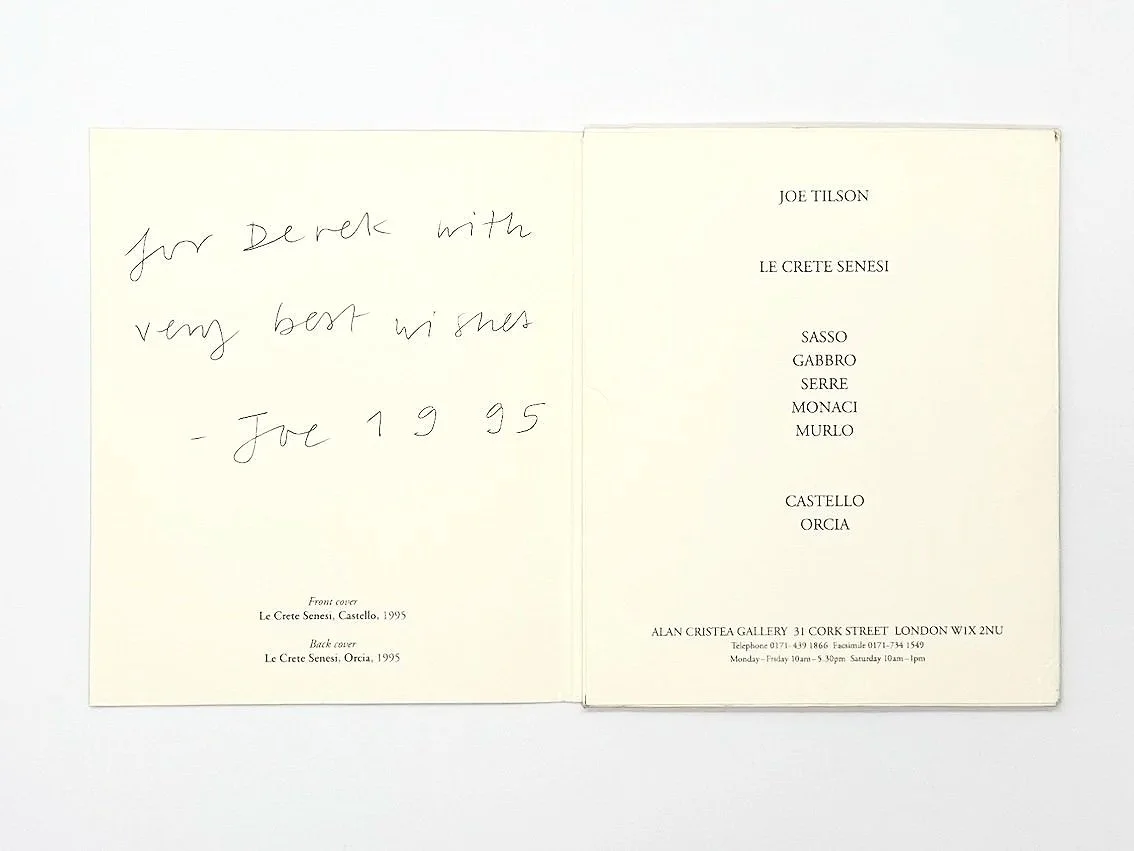 for Derek with
very best wishes
- Joe 1995
Front cover
Le Crete Senesi, Castello, 1995
Back cover
Le Crete Senesi, Orcia, 1995
JOE TILSON
LE CRETE SENESI
SASSO
GABBRO
SERRE
MONACI
MURLO
CASTELLO
ORCIA
ALAN CRISTEA GALLERY 31 CORK STREET LONDON W1X 2NU
Telephone 0171-439 1866 Facsimile 0171-734 1549
Monday–Friday 10am–5.30pm Saturday 10am–1pm